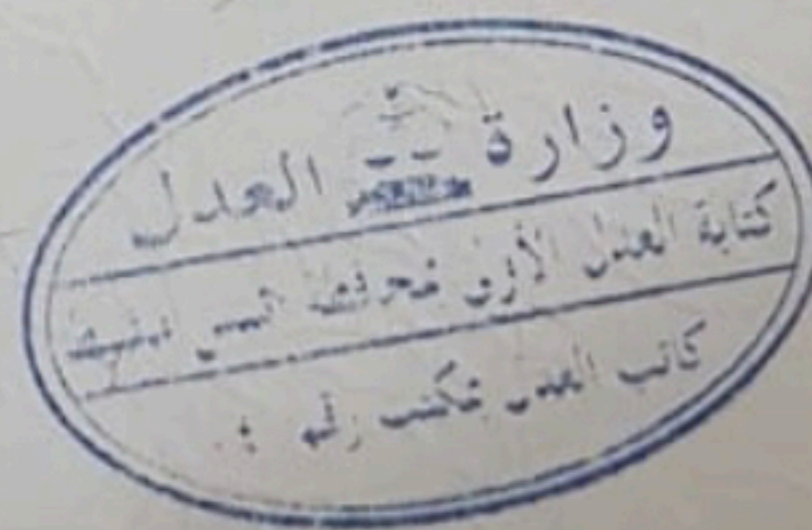 وزارة العدل
كتابة العدل الأولى بمحافظة خميس مشيط
كاتب العدل مكتب رقم